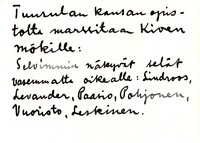 Tuusulan kansan opis-
tolta marssitaan Kiven
mökille:
Selvimmin näkyvät selät
vasemmalta oikealle: Lindroos,
Levander, Paasio, Pohjonen,
Vuoristo, Leskinen.